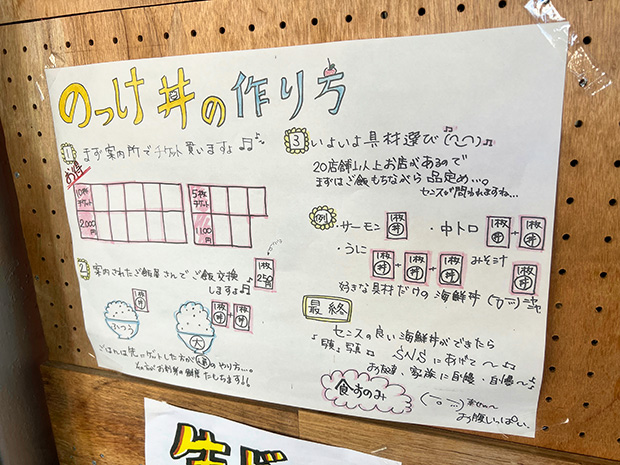 のっけ丼の作り方
1 まず案内所でチケット買いますよ♫
お得
10枚チケット
2000円
5枚チケット
1100円
2 案内されたご飯屋さんでご飯交換しますよ♫
1枚
1枚 丼
ふつう
1枚 丼 + 1枚 丼
大
3 いよいよ具材選び
20店舗以上お店があるので
まずはご飯もちながら品定め…。
センスが問われますね…
例
・サーモン 1枚 丼
・中トロ 1枚 丼 + 1枚 丼
・うに 1枚 丼 + 1枚 丼 + 1枚 丼
みそ汁 1枚 丼
好きな具材だけの海鮮丼
最終
センスの良い海鮮丼ができたら
写真♪写真♫ SNSにあげて〜♫
お友達・家族に自慢・自慢〜♪
食すのみ
お腹いっぱい。